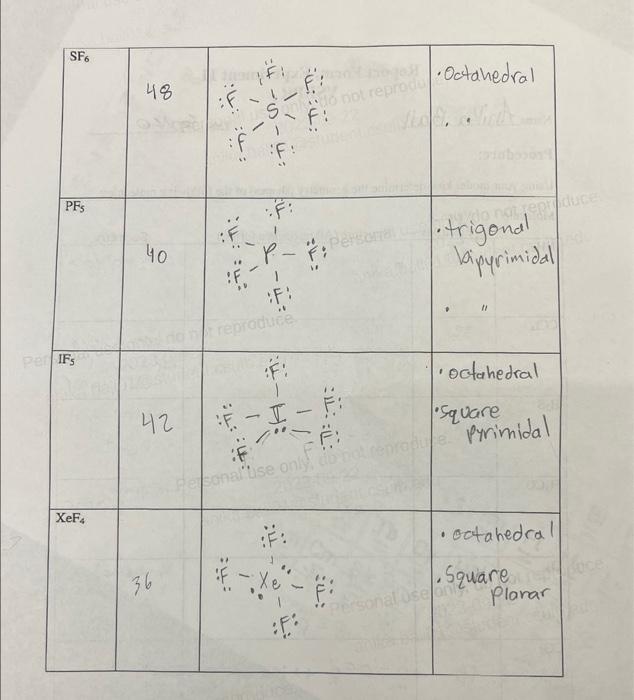 SF6
48
:F: :F:
:F - S - F:
:F :F:
· Octahedral
· "
PF5
40
:F:
:F
P - F:
:F
:F:
· trigonal
bipyrimidal
· "
IF5
42
:F:
:F - I - F:
:F F:
· octahedral
· Square
pyrimidal
XeF4
36
:F:
:F - Xe - F:
:F:
· octahedral
· Square
planar
Personal use only, do not reproduce